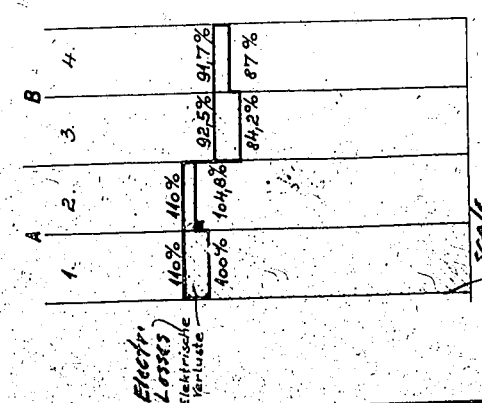 A
B
1.
2.
3.
4.
110%
110%
92,5%
91,7%
100%
104,8%
84,2%
87%
Electr.
Losses)
Elektrische
Verluste
scale